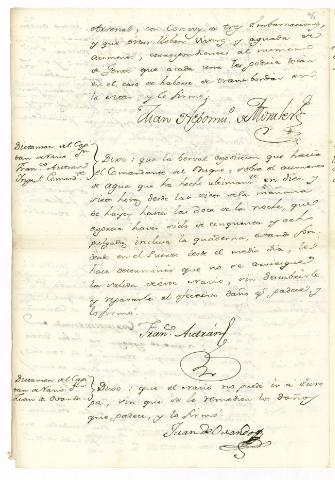 Arsenal, con Convoy de tres Embarcaciones,
y que estas lleben Viveres y aguada de
aumento, correspondiente al numero
de Gente que acada una las podria tocar
en el caso de haberse de transbordar en
la otra, y lo firmó
Juan Nepomu.º de Morales
Dictamen del Capi
tan de Navio Dn
Fran.co Autran
Dixo: que la berval exposicion que hacia
el Comandante de Buque, sobre el aumento
de agua que ha hecho ultimamte. en diez y
siete horas, desde las siete de la mañana
de hayer hasta las doce de la noche, que
expresa haver sido de cinquenta y ocho
pulgadas, inclusa la quaderna, estando fon
deado en el Puerto desde el medio dia, le
hace determinar que no se arriesgue
la salida de este Navio, sin descubrirle
y repararle el efectivo daño qe. padece, y
lo firmó
Fran.co Autran
Dictamen del Capi
tan de Navio Dn
Juan de
Dixo: que el navio no puede ir a Euro
pa, sin que se le remedien los daños
que padece, y lo firmó
Juan de